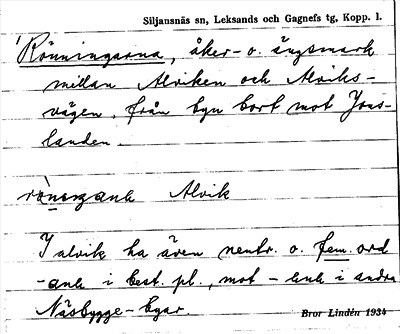 Siljansnäs sn, Leksands och Gagnefs tg, Kopp. l.
'Rönningarna, åker- o. ängsmark
mellan Alviken och Alviks-
vägen, från byn bort mot Jons-
landen.
Alvik
I alvik ha även neutr. o. fem. ord
i best. pl., mot - i andra
Näsbygge-byar.
Bror Lindén 1934